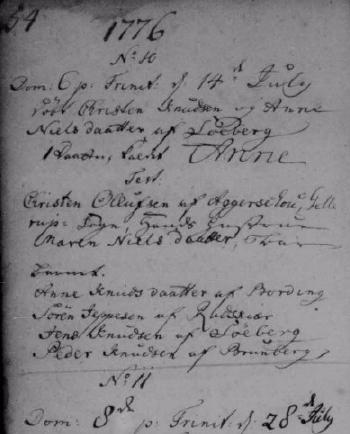 54
1776
No: 10
Dom: 6 p: Trinit: d. 14de July
døbt Christen Knudsen og Anne
Niels daatter af Löeberg
1 Daatter, kaldt Anne
Test.
Christen Ollufsen af
Sogn, Hands Hustrue
Maren Niels daatter,
Anne Knuds daatter af Bording
Sören Jeppesen af
Jens Knudsen af Löeberg
Peder Knudsen af Brunberg,
No: 11
Dom: 8de p: Trinit: d: 28de July